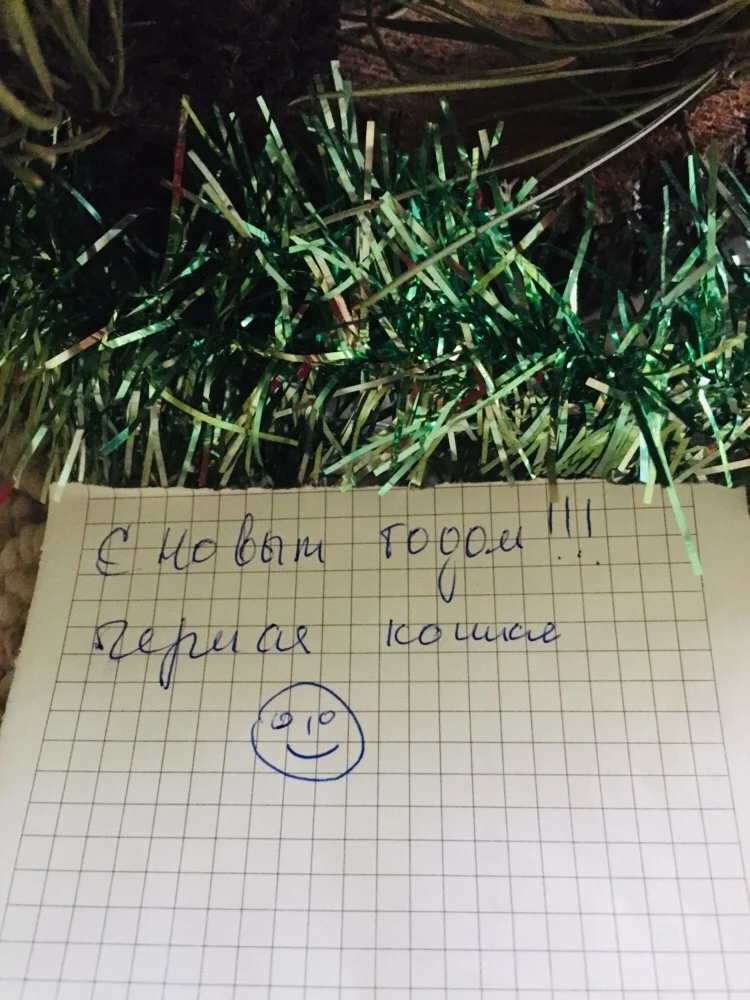 С новым годом!!!
черная кошка